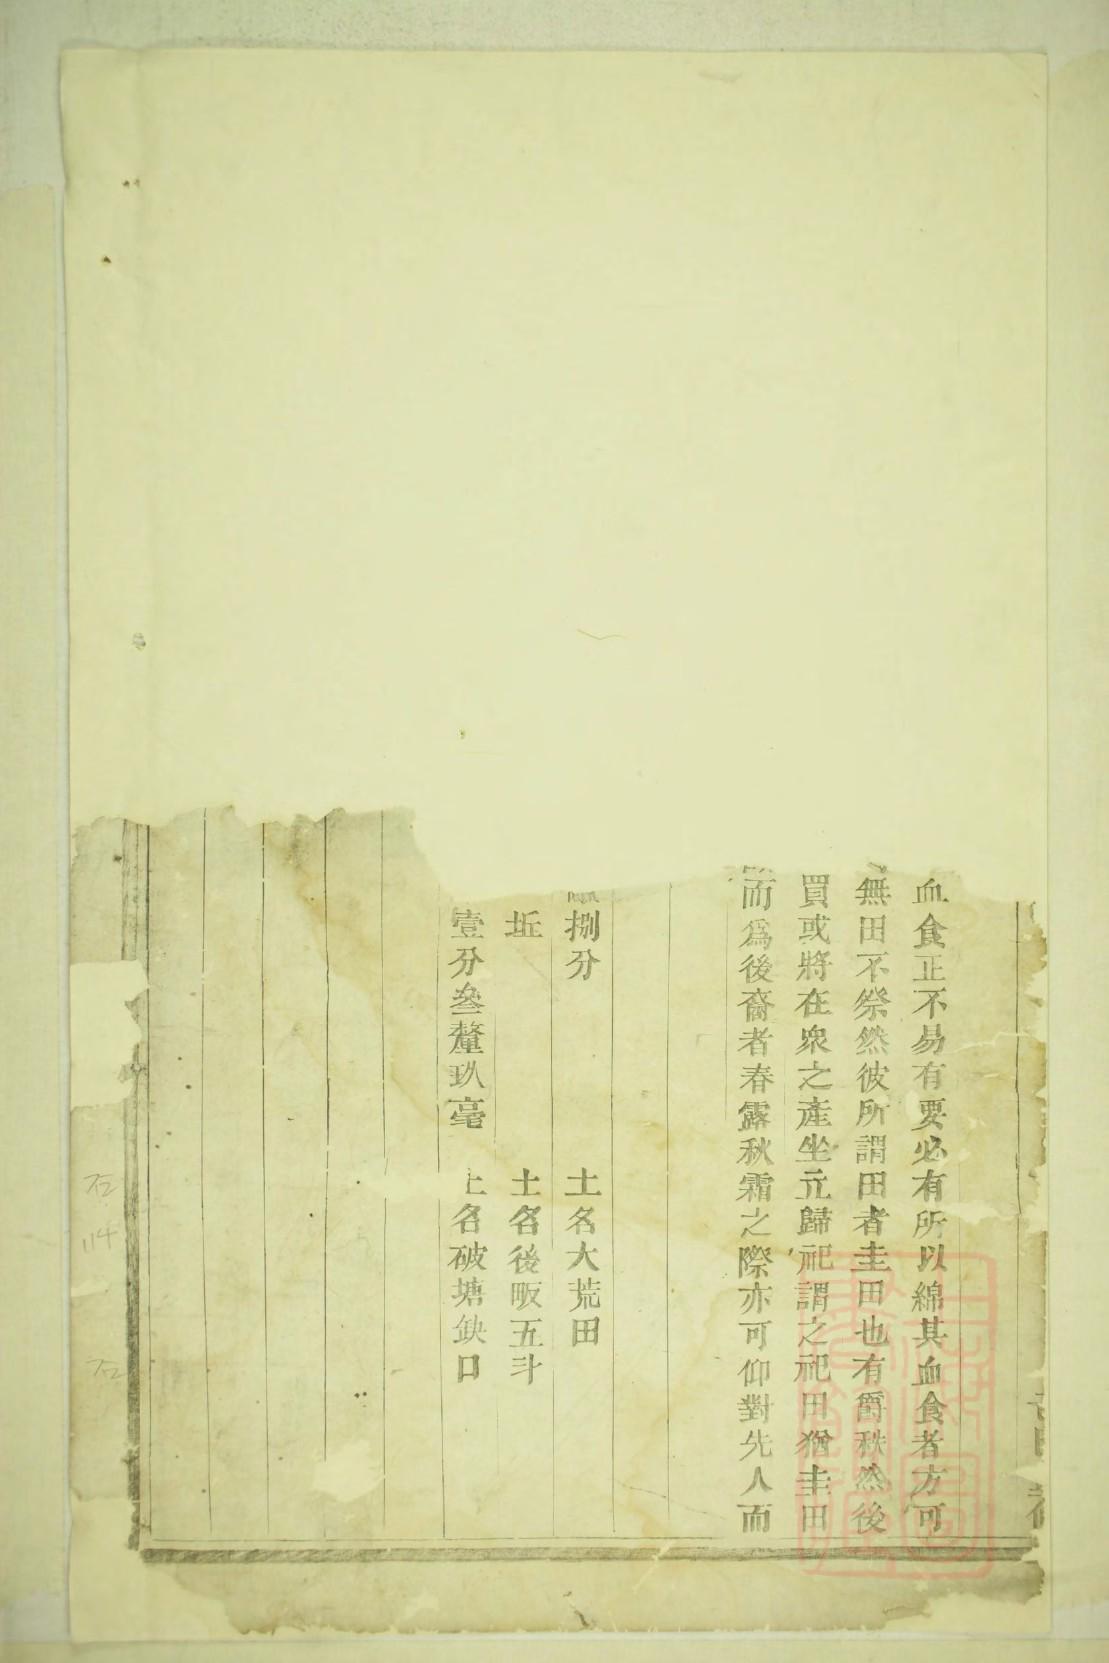 血食正不易有要必有所以綿其血食者方可
無田不祭然彼所謂田者圭田也有爵秩然後
買或將在衆之產坐立歸祀謂之祀田猶圭田
而爲後裔者春露秋霜之際亦可仰對先人而
捌分 土名大荒田
坵 土名後畈五斗
壹分叁釐玖毫 土名破塘缺口
石
114
石